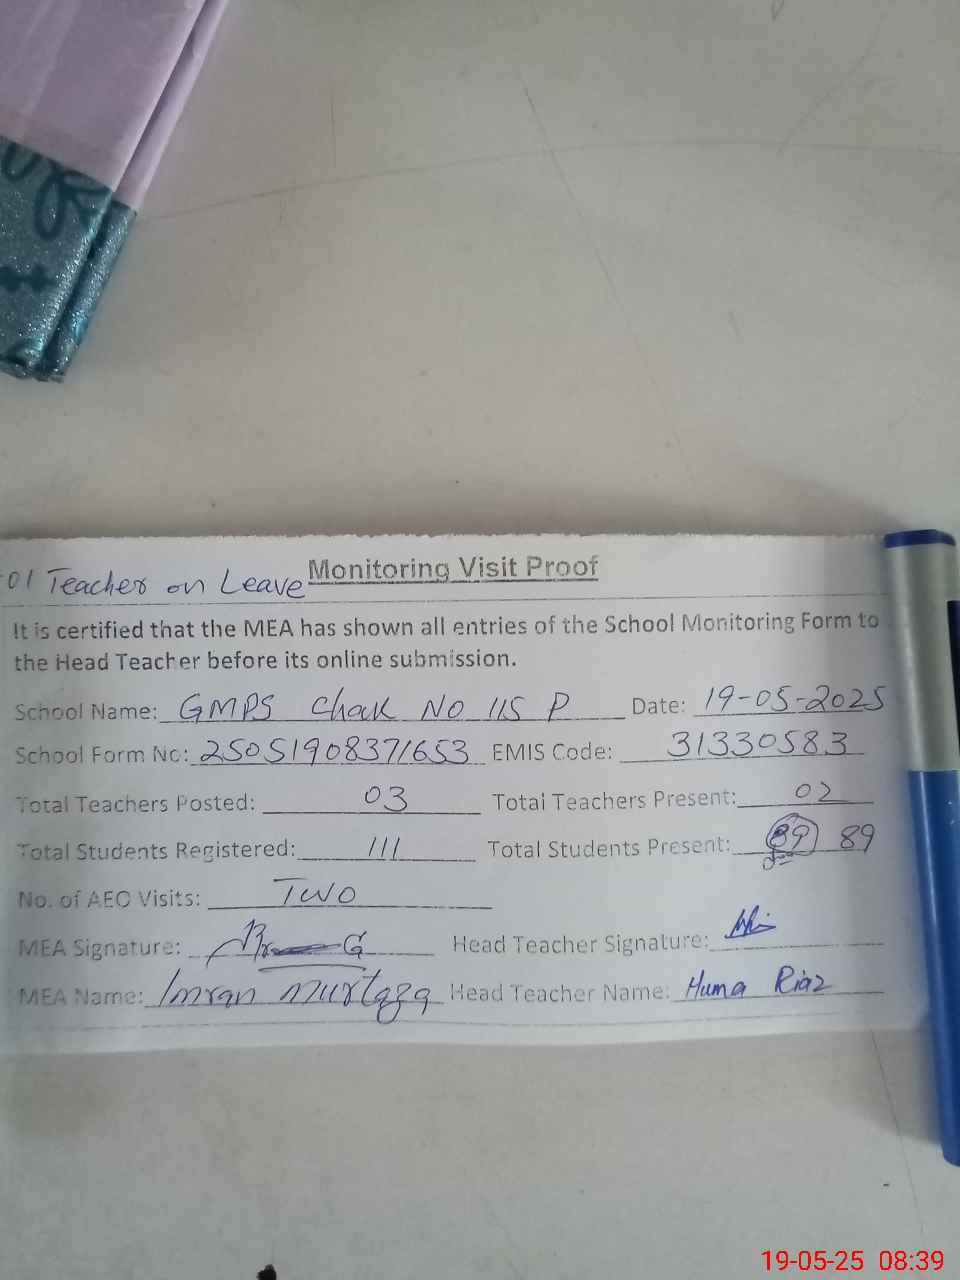 01 Teacher on Leave Monitoring Visit Proof
It is certified that the MEA has shown all entries of the School Monitoring Form to
the Head Teacher before its online submission.
School Name: GMPS Chak NO 115 P Date: 19-05-2025
School Form No: 25051908371653 EMIS Code: 31330583
Total Teachers Posted: 03 Total Teachers Present: 02
Total Students Registered: 111 Total Students Present: 89 89
No. of AEO Visits: TWO
MEA Signature: Head Teacher Signature:
MEA Name: Imran Murtaza Head Teacher Name: Huma Riaz
19-05-25 08:39